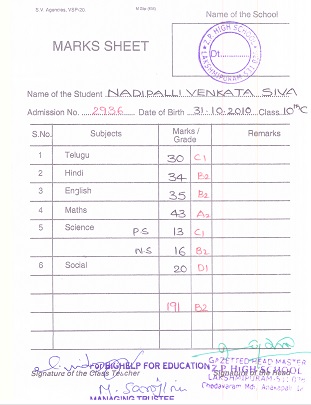 S.V. Agencies, VSP-20.
Name of the School
MARKS SHEET
Z.P. HIGH SCHOOL
Dt.
Name of the Student NADIPALLI VENKATA SIVA
Admission No. 2936 Date of Birth 31-10-2010 Class 10th C
S.No. Subjects Marks / Grade Remarks
1 Telugu 30 C1
2 Hindi 34 B2
3 English 35 B2
4 Maths 43 A2
5 Science P.S 13 C1
N.S 16 B2
6 Social 20 D1
191 B2
For BIGHELP FOR EDUCATION
GAZETTED HEAD MASTER
Z.P HIGH SCHOOL
Signature of the Class Teacher
Signature of the Head
MANAGING TRUSTEE